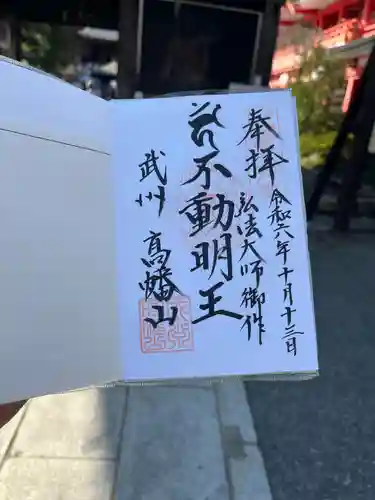 奉拝
令和六年十月十三日
弘法大師御作
不動明王
武州
髙幡山